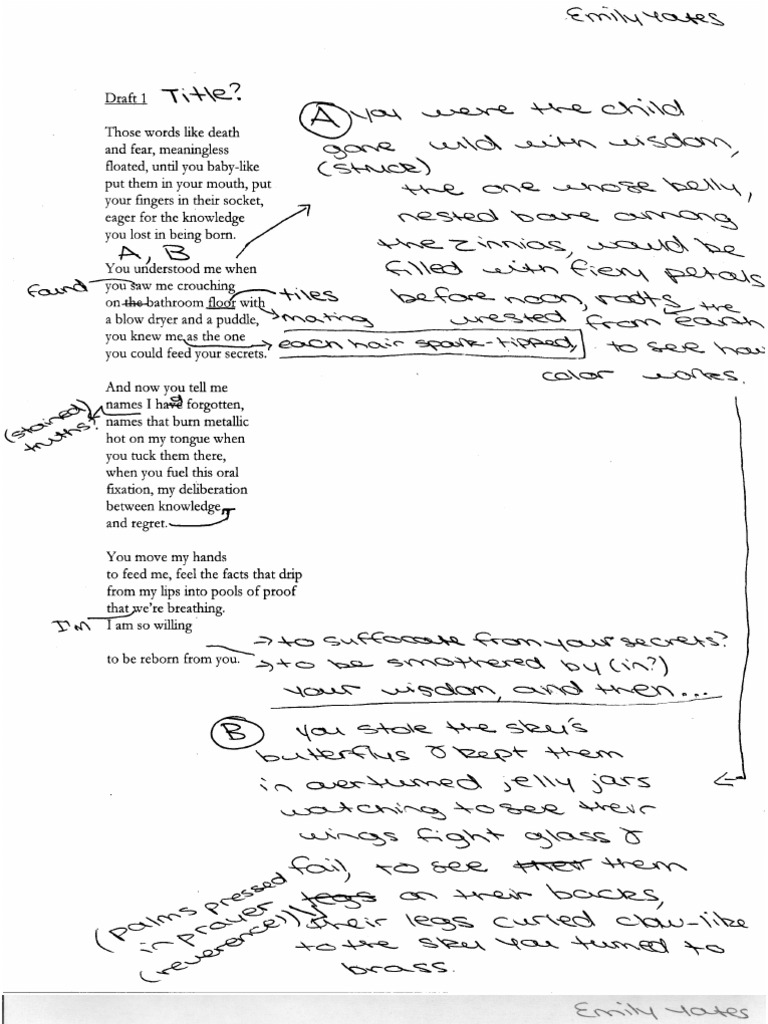 Emily Yates
Draft 1 Title?
Those words like death
and fear, meaningless
floated, until you baby-like
put them in your mouth, put
your fingers in their socket,
eager for the knowledge
you lost in being born.
A, B
You understood me when
found
you saw me crouching
on the bathroom floor with
tiles
a blow dryer and a puddle,
mating
you knew me as the one
each hair spark-tipped,
you could feed your secrets.
And now you tell me
names I have forgotten,
d
(stained)
truths?
names that burn metallic
hot on my tongue when
you tuck them there,
when you fuel this oral
fixation, my deliberation
between knowledge
and regret.
You move my hands
to feed me, feel the facts that drip
from my lips into pools of proof
that we're breathing.
I'm
I am so willing
→ to suffocate from your secrets?
to be reborn from you.
→ to be smothered by (in?)
your wisdom, and then...
A You were the child
gone wild with wisdom,
(struck)
the one whose belly,
nested bare among
the zinnias, would be
filled with fiery petals
before noon, roots
wrested from earth
the
to see how
color works.
B You stole the sky's
butterflys & kept them
in overturned jelly jars
watching to see their
wings fight glass &
fail, to see their them
legs on their backs,
(palms pressed
in prayer
(reverence!))
their legs curled claw-like
to the sky you turned to
brass.
Emily Yates